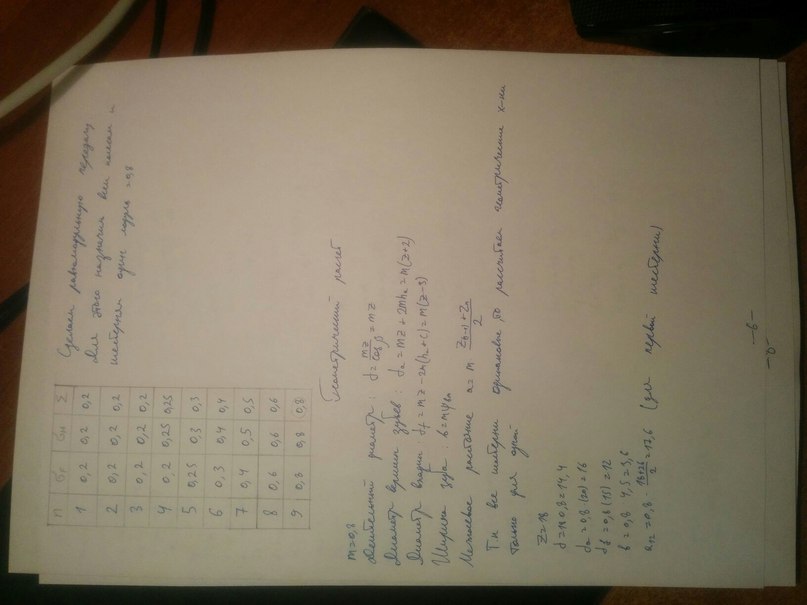 n σF σH Σ
1 0,2 0,2 0,2
2 0,2 0,2 0,2
3 0,2 0,2 0,2
4 0,2 0,25 0,25
5 0,25 0,3 0,3
6 0,3 0,4 0,4
7 0,4 0,5 0,5
8 0,6 0,6 0,6
9 0,8 0,8 0,8
Сделаем равномодульную передачу
для этого назначим всем колесам и
шестерням один модуль =0,8
Геометрический расчет
m=0,8
Делительный диаметр: d = mz/cosβ = mz
Диаметр вершин зубьев: da = mz + 2mha = m(z+2)
Диаметр впадин df = mz - 2m(ha+c) = m(z-3)
Ширина зуба b = mψbm
Межосевое расстояние a = m
Тк все шестерни одинаковые, то рассчитаем геометрические х-ки
только для одной
z=18
d=18·0,8=14,4
da=0,8(20)=16
df=0,8(15)=12
b=0,8·4,5=3,6
=0,8· (18+26)/2 =17,6 (для первой шестерни)
-6-